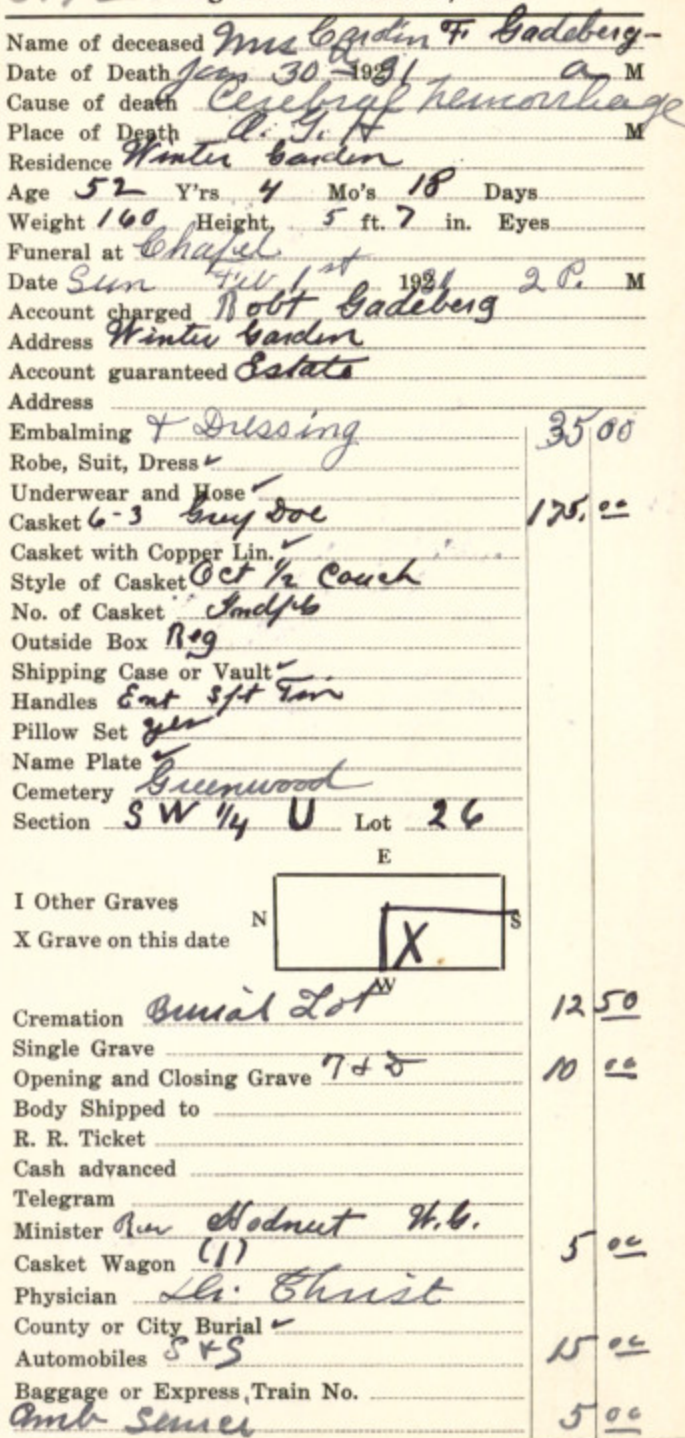 Name of deceased Mrs Cardin F. Gadeberg-
Date of Death Jan 30 - 1931 a M
Cause of death Cerebral hemorrhage
Place of Death O. G. H M
Residence Winter Garden
Age 52 Y'rs 4 Mo's 18 Days
Weight 160 Height, 5 ft. 7 in. Eyes
Funeral at Chapel
Date Sun Feb 1st 1931 2 P. M
Account charged Robt Gadeberg
Address Winter Garden
Account guaranteed Estate
Address
Embalming & Dressing 35 00
Robe, Suit, Dress ✓
Underwear and Hose ✓
Casket 6-3 Grey Doe 175.00
Casket with Copper Lin. ✓
Style of Casket Oct 1/2 Couch
No. of Casket
Outside Box Reg
Shipping Case or Vault ✓
Handles Ext
Pillow Set yes
Name Plate ✓
Cemetery Greenwood
Section SW 1/4 U Lot 26
E
I Other Graves
N S
X Grave on this date X
W
Cremation Burial Lot 12 50
Single Grave
Opening and Closing Grave 10 00
Body Shipped to
R. R. Ticket
Cash advanced
Telegram
Minister Rev Hodnut W.G.
Casket Wagon (1) 5 00
Physician Dr. Christ
County or City Burial ✓
Automobiles S & S 15 00
Baggage or Express, Train No.
Amb Service 5 00